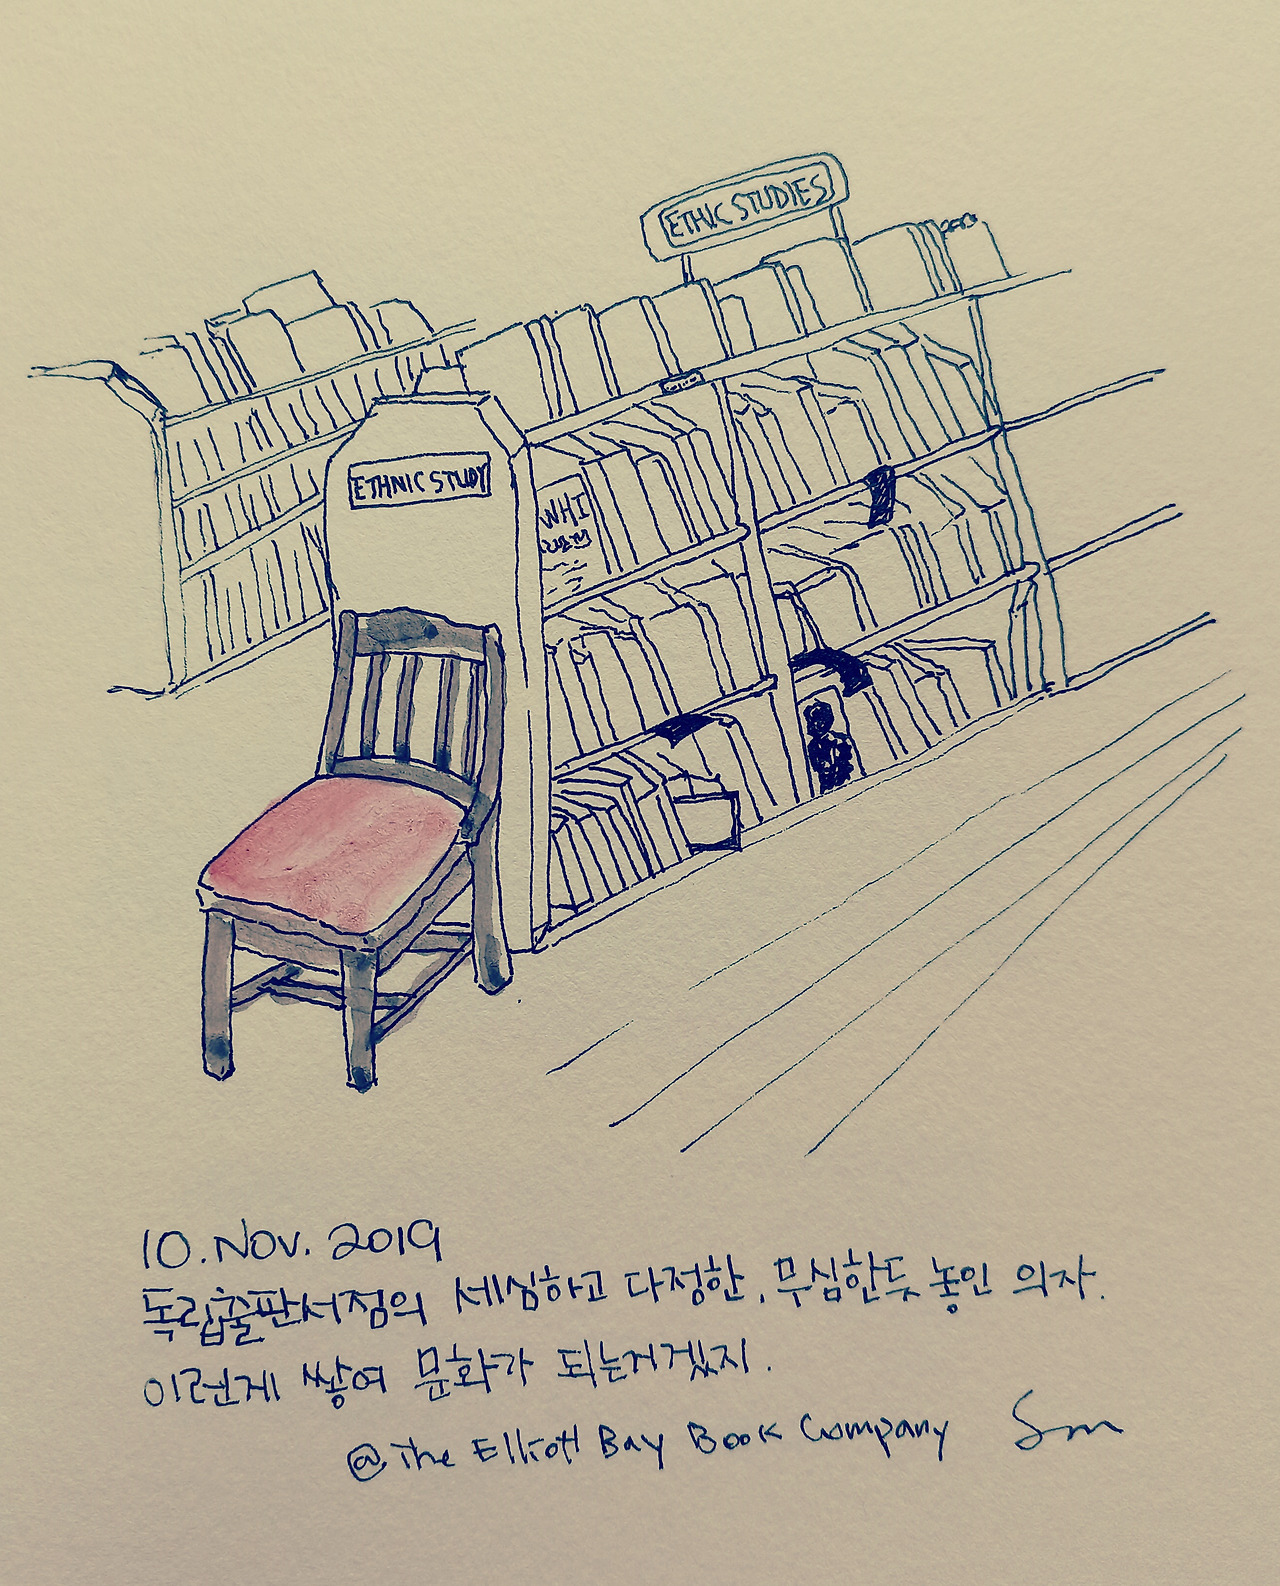 ETHIC STUDIES
ETHNIC STUDY
WHI
10. Nov. 2019
독립출판서점의 세심하고 다정한, 무심한듯 놓인 의자.
이런게 쌓여 문화가 되는거겠지.
@The Elliott Bay Book Company Sm